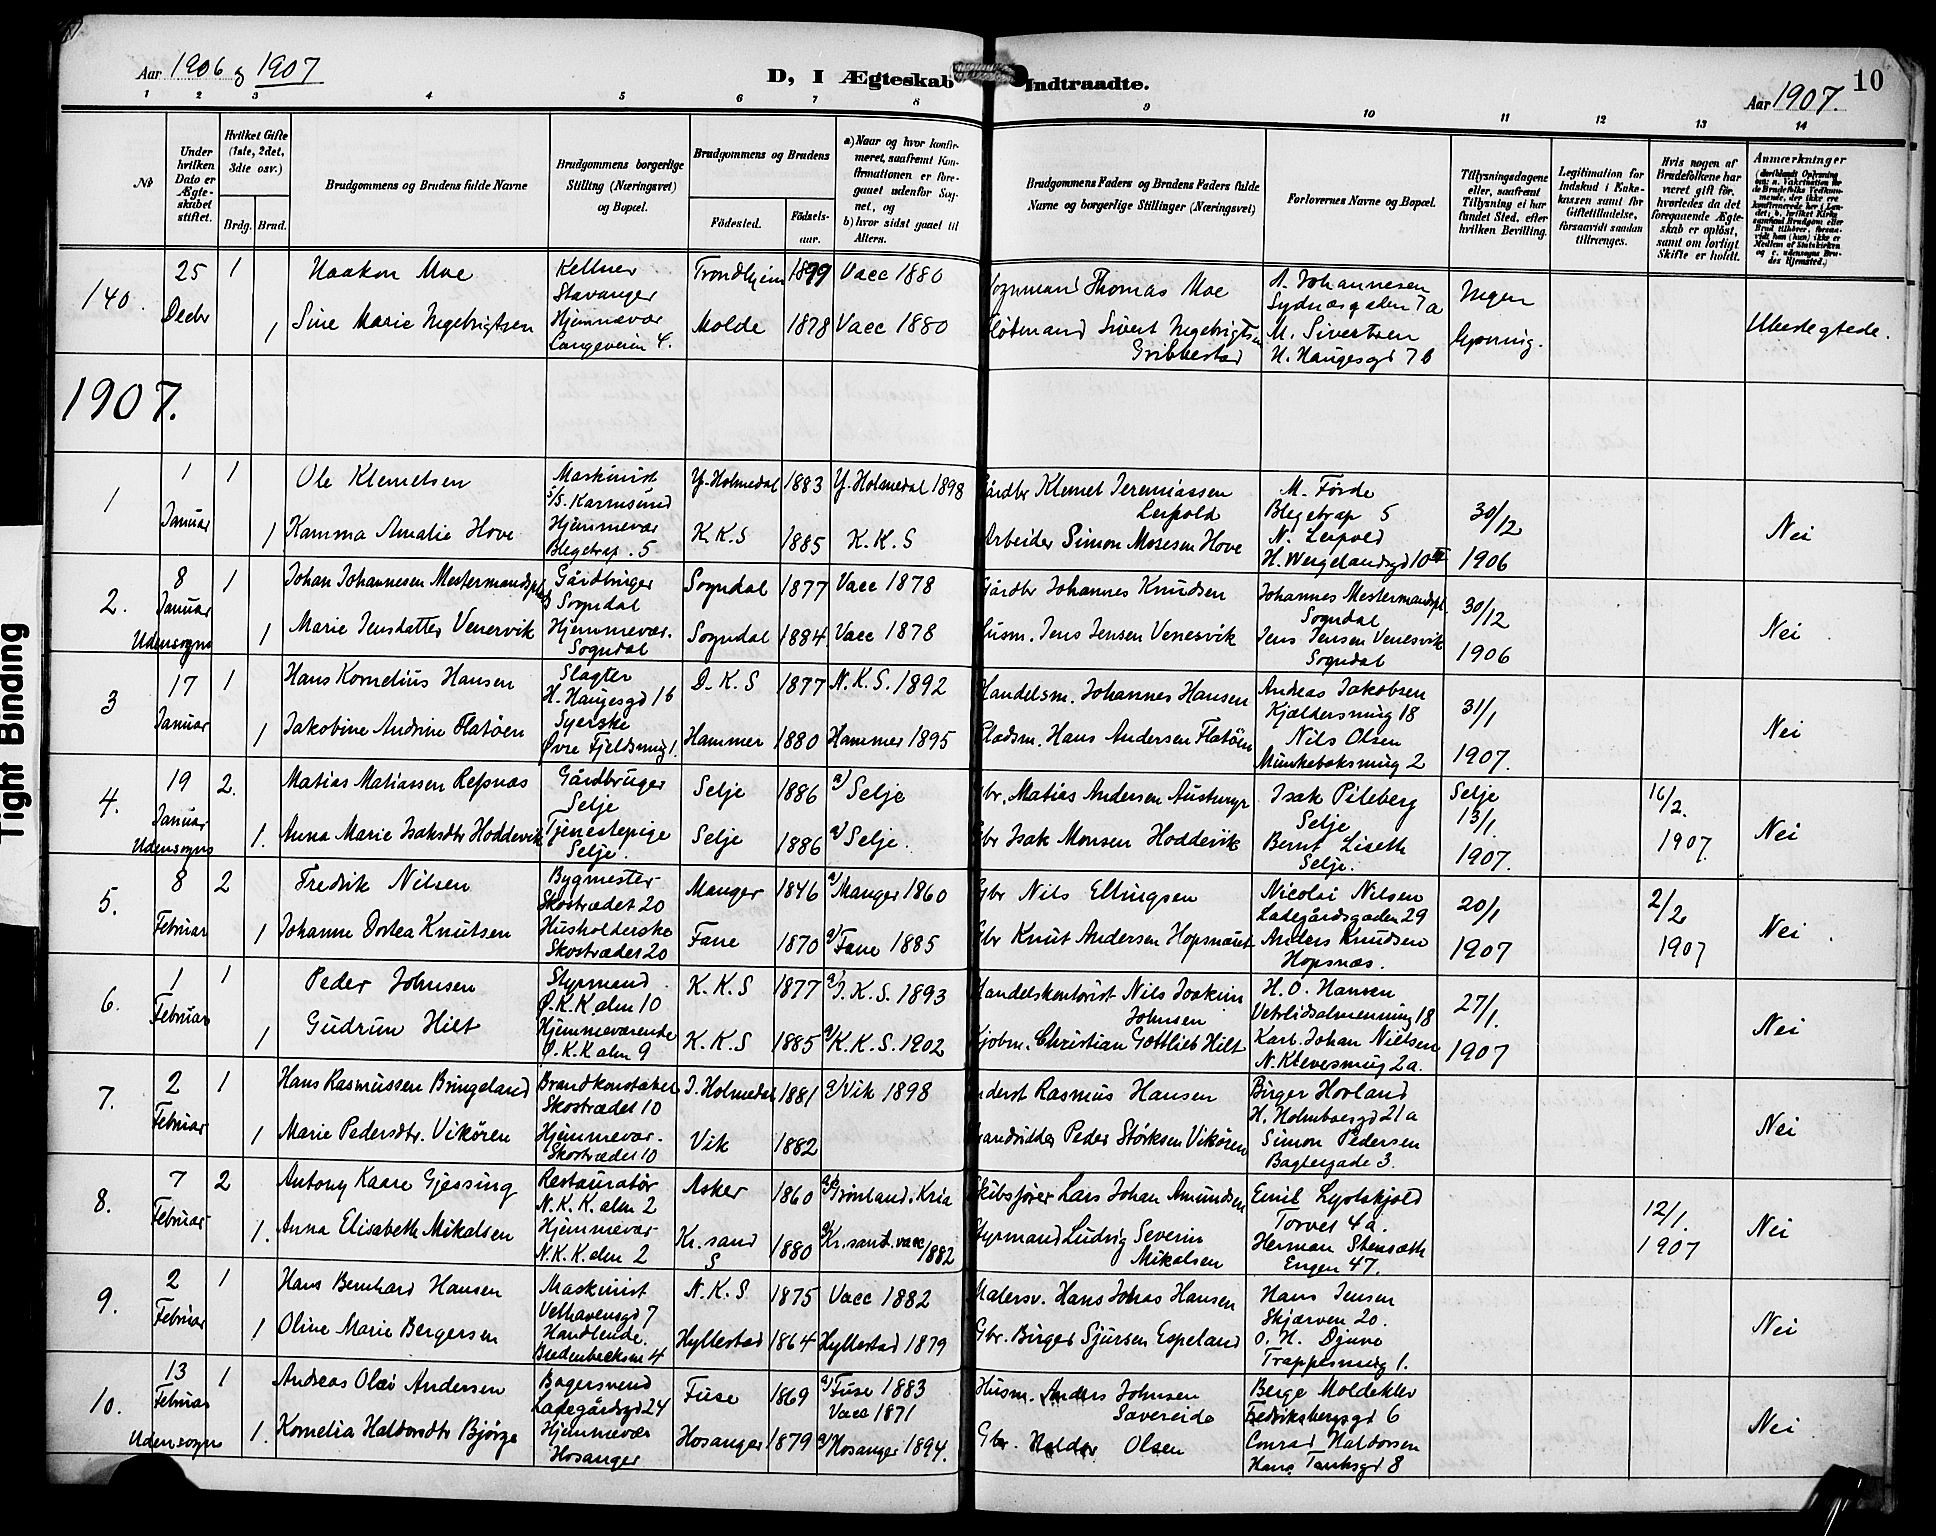 Aar 1906 & 1907
D, I Ægteskab Indtraadte.
Aar 1907.
10
1 2 3 4 5 6 7 8 9 10 11 12 13 14
№
Under hvilken Dato er Ægteskabet stiftet.
Hvilket Gifte (1ste, 2det, 3die osv.)
Brdg. Brud.
Brudgommens og Brudens fulde Navne
Brudgommens borgerlige Stilling (Næringsvei) og Bopæl.
Brudgommens og Brudens
Fødested.
Fødselsaar.
a) Naar og hvor konfirmeret, saafremt Konfirmationen er foregaaet udenfor Sognet, og
b) hvor sidst gaaet til Alters.
Brudgommens Faders og Brudens Faders fulde Navne og borgerlige Stillinger (Næringsvei)
Forlovernes Navne og Bopæl.
Tillysningsdagene eller, saafremt Tillysning ei har fundet Sted, efter hvilken Bevilling.
Legitimation for Indskud i Enkekassen samt for Giftetilladelse, forsaavidt saadan tiltrænges.
Hvis nogen af Brudefolkene har været gift før, hvorledes da det foregaaende Ægteskab er opløst, samt om lovligt Skifte er holdt.
Anmærkninger
140. 25 Decbr 1 Haakon Moe Kellner Stavanger Trondhjem Vacc 1880 Thomas Moe A. Johannesen Sydnæsgaten 7a Ingen
1 Sine Marie Ingebrigtsen Hjemmevær Langeveien 4. Molde 1878 Vacc 1880 Sivert Ingebrigtsen Gribbestad M. Sivertsen H. Haugesgd 7b Ubeslegtede.
1907.
1 1 Januar 1 Ole Klemetsen Maskinist S/S. Karmsund Y. Holmedal 1883 Y. Holmedal 1898 Gårdbr Klemet Jeremiassen Leipold M. Førde Blegetrap 5 30/12
1 Kamma Amalie Hove Hjemmevær Blegetrap. 5 K.K.S 1885 K.K.S Arbeider Simon Mosesen Hove N. Leipold H. Wergelandsgd 10 1906 Nei
2. 8 Januar 1 Johan Johannesen Mestermandspl Gårdbruger Sogndal Sogndal 1877 Vacc 1878 Gårdbr Johannes Knudsen Johannes Mestermandspl. Sogndal 30/12
Udensogns 1 Marie Jensdatter Venesvik Hjemmevær. Sogndal Sogndal 1884 Vacc 1878 Husm. Jens Jensen Venesvik Jens Jensen Venesvik Sogndal 1906 Nei
3 17 Januar 1 Hans Kornelius Hansen Slagter H. Haugesgd 16 D.K.S 1877 N.K.S. 1892 Handelsm. Johannes Hansen Andreas Jakobsen Kjældersmug 18 31/1
1 Jakobine Andrine Flatøen Syerske Øvre Fjeldsmug 1. Hammer 1880 Hammer 1895 Pladsm. Hans Andersen Flatøen Nils Olsen Munkebæksmug 2 1907. Nei
4. 19 Januar 2. Matias Matiassen Refsnæs Gårdbruger Selje Selje 1886 a) Selje Gbr. Matias Andersen Isak Pileberg Selje Selje 13/1. 16/2.
Udensogns 1. Anna Marie Isaksdtr Hoddevik Tjenestepige Selje. Selje 1886 a) Selje. Gbr Isak Monsen Hoddevik Bernt Liseth Selje. 1907. 1907. Nei
5. 8 Februar 2 Fredrik Nilsen Bygmester Skostrædet 20 Manger 1846 a) Manger 1860 Gbr Nils Ellingsen Nicolai Nilsen Ladegårdsgaden 29 20/1 2/2
1 Johanne Dortea Knutsen Husholderske Skostrædet 20 Fane 1870 a) Fane 1885 Gbr Knut Andersen Hopsnæset Anders Knudsen Hopsnæs. 1907 1907 Nei
6. 1 Februar 1 Peder Johnsen Styrmand Ø.K.K. alm 10 K.K.S 1877 a) J.K.S. 1893 Handelskontorist Nils Joakim Johnsen H.O. Hansen Vetrlidsalmenning 18 27/1.
1 Gudrun Hilt Hjemmeværende Ø.K.K alm 9 K.K.S 1885 a) K.K.S. 1902 Kjøbm. Christian Gottlieb Hilt Karl Johan Nielsen N. Klevesmug 2a. 1907 Nei
7. 2 Februar 1 Hans Rasmussen Bringeland Brandkonstabel Skostrædet 10 I. Holmedal 1881 a) Vik 1898 Rasmus Hansen Birger Hovland H. Holmboesgd 21a
1 Marie Pedersdtr. Vikøren Hjemmevær. Skostrædet 10 Vik 1882 Peder Størksen Vikøren Simon Pedersen Baglergade 3. Nei
8. 7 Februar 2 Antony Kaare Gjessing Restauratør N.K.K. alm 2 Asker 1860 Grønland, Kria Skibsfører Lars Johan Amundsen Emil Torvet 4a. 12/1.
1. Anna Elisabeth Mikalsen Hjemmevær N.K.K. alm 2 Kr.sand S 1880 Kr.sand. vacc 1882 Styrmand Ludvig Severin Mikalsen Herman Stensæth Engen 47. 1907 Nei
9. 2 Februar 1 Hans Bernhard Hansen Maskinist Velhavensgd 7 N.K.S 1875 Vacc 1882 Malersv. Hans Johas Hansen Hans Jensen Skjærven 20.
1 Oline Marie Bergersen Handlende. Hyllestad 1864 Hyllestad 1879 Gbr. Birger Sjursen Espeland O.N. Djuve Trappesmug 1. Nei
10. 13 Februar 1 Andreas Olai Andersen Bagersvend Ladegårdsgd 24 Fuse 1869 a) Fuse 1883 Vacc 1871 Husm. Anders Johnsen Sævereide Berge Moldeklev Fredriksbergsgd 6
Udensogns 1. Kornelia Haldorsdtr Bjørge Hjemmevær Hosanger Hosanger 1879 a) Hosanger 1894. Gbr. Haldor Olsen Conrad Haldorsen Hans Tanksgd 8 Nei
Tight Binding